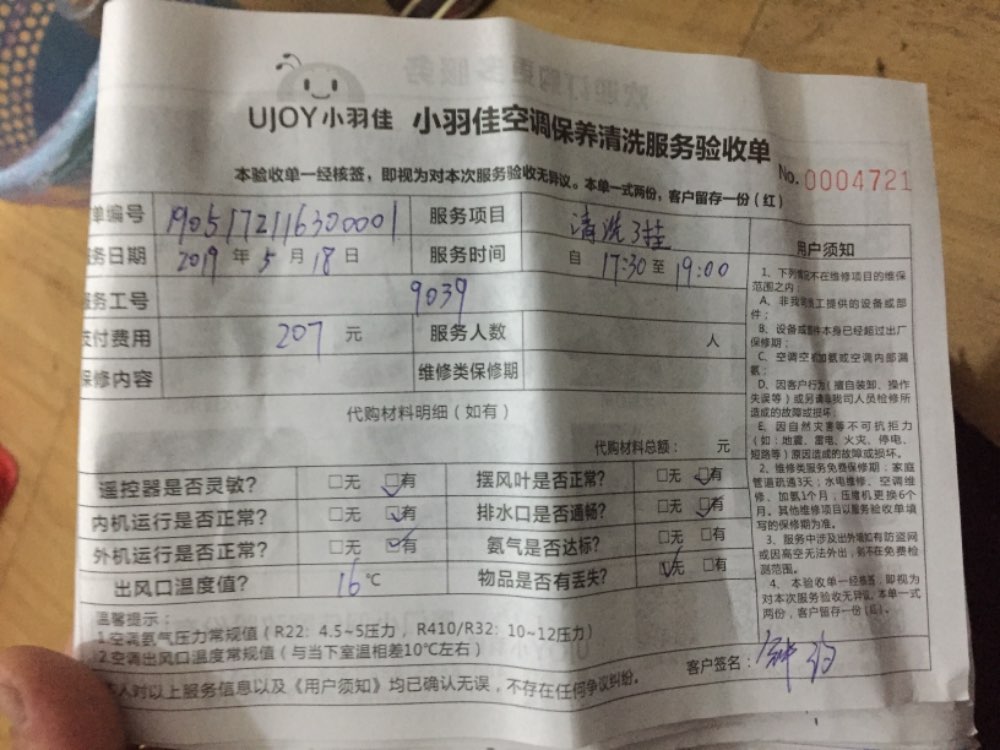 欢迎订购更多服务
UJOY小羽佳 小羽佳空调保养清洗服务验收单
No. 0004721
本验收单一经核签，即视为对本次服务验收无异议。本单一式两份，客户留存一份（红）
单编号 1905172116300001 服务项目 清洗3挂
务日期 2019 年 5 月 18 日 服务时间 自 17:30 至 19:00
服务工号 9039
支付费用 207 元 服务人数 人
保修内容 维修类保修期
代购材料明细（如有）
代购材料总额： 元
遥控器是否灵敏？ □无 □有 摆风叶是否正常？ □无 □有
内机运行是否正常？ □无 □有 排水口是否通畅？ □无 □有
外机运行是否正常？ □无 □有 氨气是否达标？ □无 □有
出风口温度值？ 16 ℃ 物品是否有丢失？ □无 □有
温馨提示：
1.空调氨气压力常规值（R22：4.5~5压力，R410/R32：10~12压力）
2.空调出风口温度常规值（与当下室温相差10℃左右）
客户签名：钟
人对以上服务信息以及《用户须知》均已确认无误，不存在任何争议纠纷。
用户须知
1、下列情况不在维修项目的维保
范围之内：
A、非我司员工提供的设备或部
件；
B、设备或部件本身已经超过出厂
保修期；
C、空调空机加氨或空调内部漏
氨；
D、因客户行为（擅自装卸、操作
失误等）或另请非我司人员检修所
造成的故障或损坏；
E、因自然灾害等不可抗拒力
（如：地震、雷电、火灾、停电、
短路等）原因造成的故障或损坏。
2、维修类服务免费保修期：家庭
管道疏通3天；水电维修、空调维
修、加氨1个月；压缩机更换6个
月。其他维修项目以服务验收单填
写的保修期为准。
3、服务中涉及出外墙如有防盗网
或因高空无法外出，则不在免费检
测范围。
4、本验收单一经核签，即视为
对本次服务验收无异议。本单一式
两份，客户留存一份（红）。